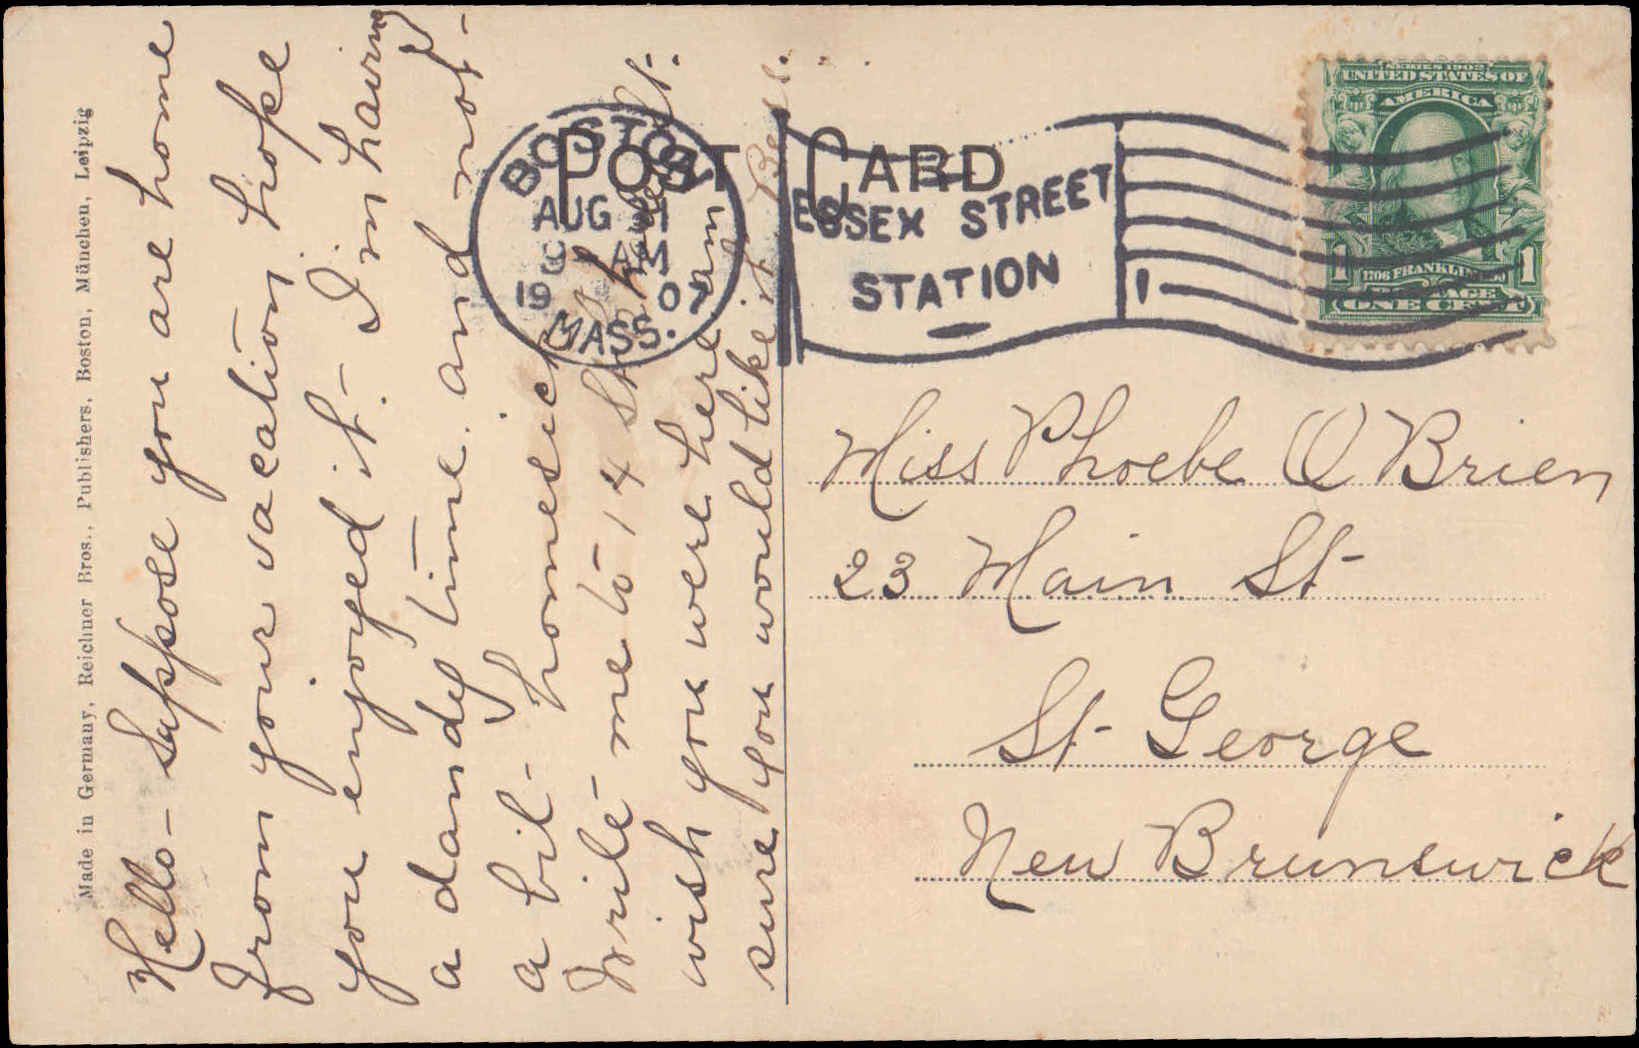 Made in Germany, Reichner Bros., Publishers, Boston, München, Leipzig
Hello- Suppose you are home
from your vacation, hope
you enjoyed it- I'm having
a dandy time. and not-
a bit- homesick
Write- me to 14 St.
wish you were here am
sure you would like it
POST CARD
BOSTON
AUG 31
AM
19 07
MASS.
ESSEX STREET
STATION
1
SERIES 1902
UNITED STATES OF
AMERICA
1706 FRANKLIN 1790
1 POSTAGE 1
ONE CENT
Miss Phoebe O Brien
23 Main St
St George
New Brunswick